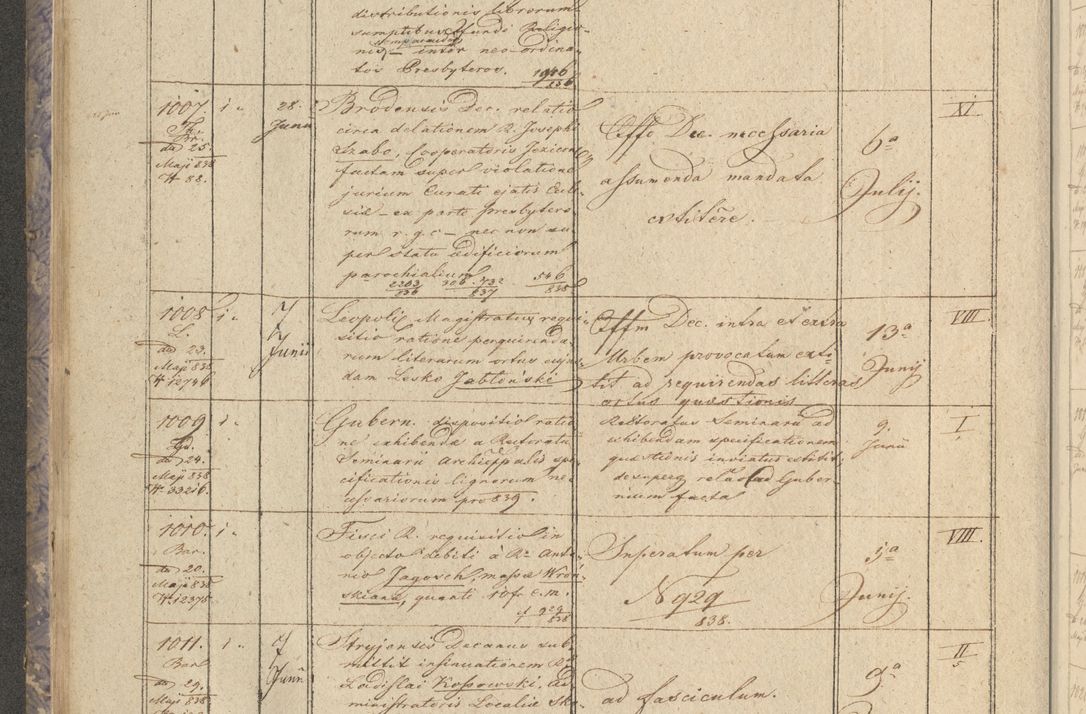 distributionis librorum
sumptibus fundi Religio-
nis, comparandor. inter neo-ordina-
tos Presbyteros. 1946/836
1007 i. 28. Junii
dto 25. Maji 838 N 88.
Brodensis Dec. relatio
circa delationem R. Josephi
Szabo, Cooperatoris
factam super violatione
jurium Curati ejatis
sis ex parte Presbytero-
rum r. g. c. nec non su-
per statu Edificiorum
parochialium 546/838
2203/836 306.732/837
Offo Dec. necessaria
assumenda mandata
extitere.
6a Julij.
XI.
1008 i. 7 Junii
L.
dto 23. Maji 838 N 12746
Leopolis Magistratus requi-
sitio ratione perquirenda-
rum literarum ortus cujus-
dam Lesko Jabłoński
Offm Dec. intra et extra
Urbem provocatum exti-
tit ad requirendas litteras
ortus quaestionis
13a Junij
VIII.
1009 i.
dto 24. Maji 838 N 33216.
Gubern. dispositio ratio-
ne exhibendae a Rectoratu
Seminarii Archieppalis spe-
cificationis lignorum ne-
cessariorum pro 839.
Rectoratus Seminarii ad
exhibendam specificationem
quaestionis inviatus extitit
desuperq relatio ad Guber-
nium facta
9. Junii
I
1010. i.
Bar.
dto 20. Maji 838 N 12375
Fisci R. requisitio in
objecto debiti à Rdo Anto-
nio Jagosch, massae Wroń-
skiana, quanti 10 fr. c. m.
929/838
Inperatum per
N 929/838.
5a Junij.
VIII.
1011. i. 7 Junii
Bar
dto 29. Maji 838
Stryjensis Decanus sub-
mittit insinuationem Rdi
Ladislai Kossowski, Ad-
ministratoris Localiae Sko-
ad fasciculum.
9a
II
5